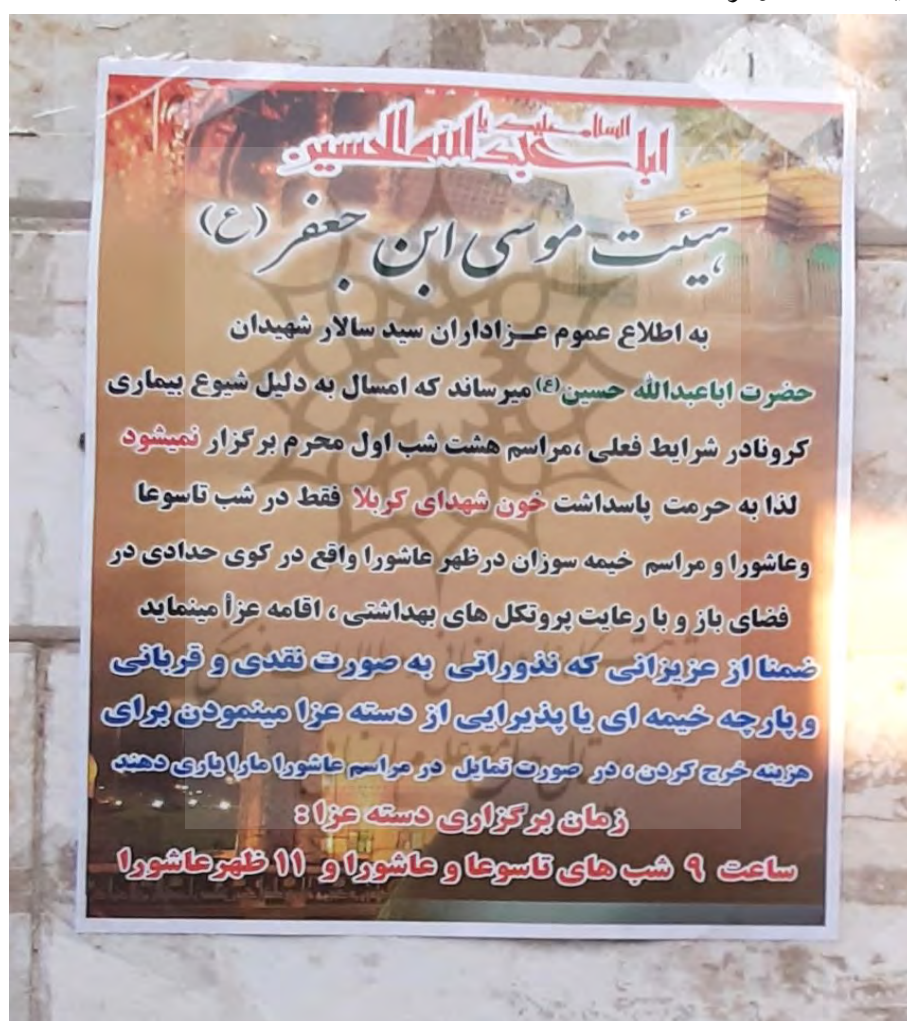 السلام علیک یا
اباعبدالله الحسین
هیئت موسی ابن جعفر (ع)
به اطلاع عموم عـــزاداران سید سالار شهیدان
حضرت اباعبدالله حسین (ع) میرساند که امسال به دلیل شیوع بیماری
کرونادر شرایط فعلی ،مراسم هشت شب اول محرم برگزار نمیشود
لذا به حرمت پاسداشت خون شهدای کربلا فقط در شب تاسوعا
وعاشورا و مراسم خیمه سوزان درظهر عاشورا واقع در کوی حدادی در
فضای باز و با رعایت پروتکل های بهداشتی ، اقامه عزأ مینماید
ضمنا از عزیزانی که نذوراتی به صورت نقدی و قربانی
و پارچه خیمه ای یا پذیرایی از دسته عزا مینمودن برای
هزینه خرج کردن ، در صورت تمایل در مراسم عاشورا مارا یاری دهند
زمان برگزاری دسته عزا :
ساعت ۹ شب های تاسوعا و عاشورا و ۱۱ ظهرعاشورا